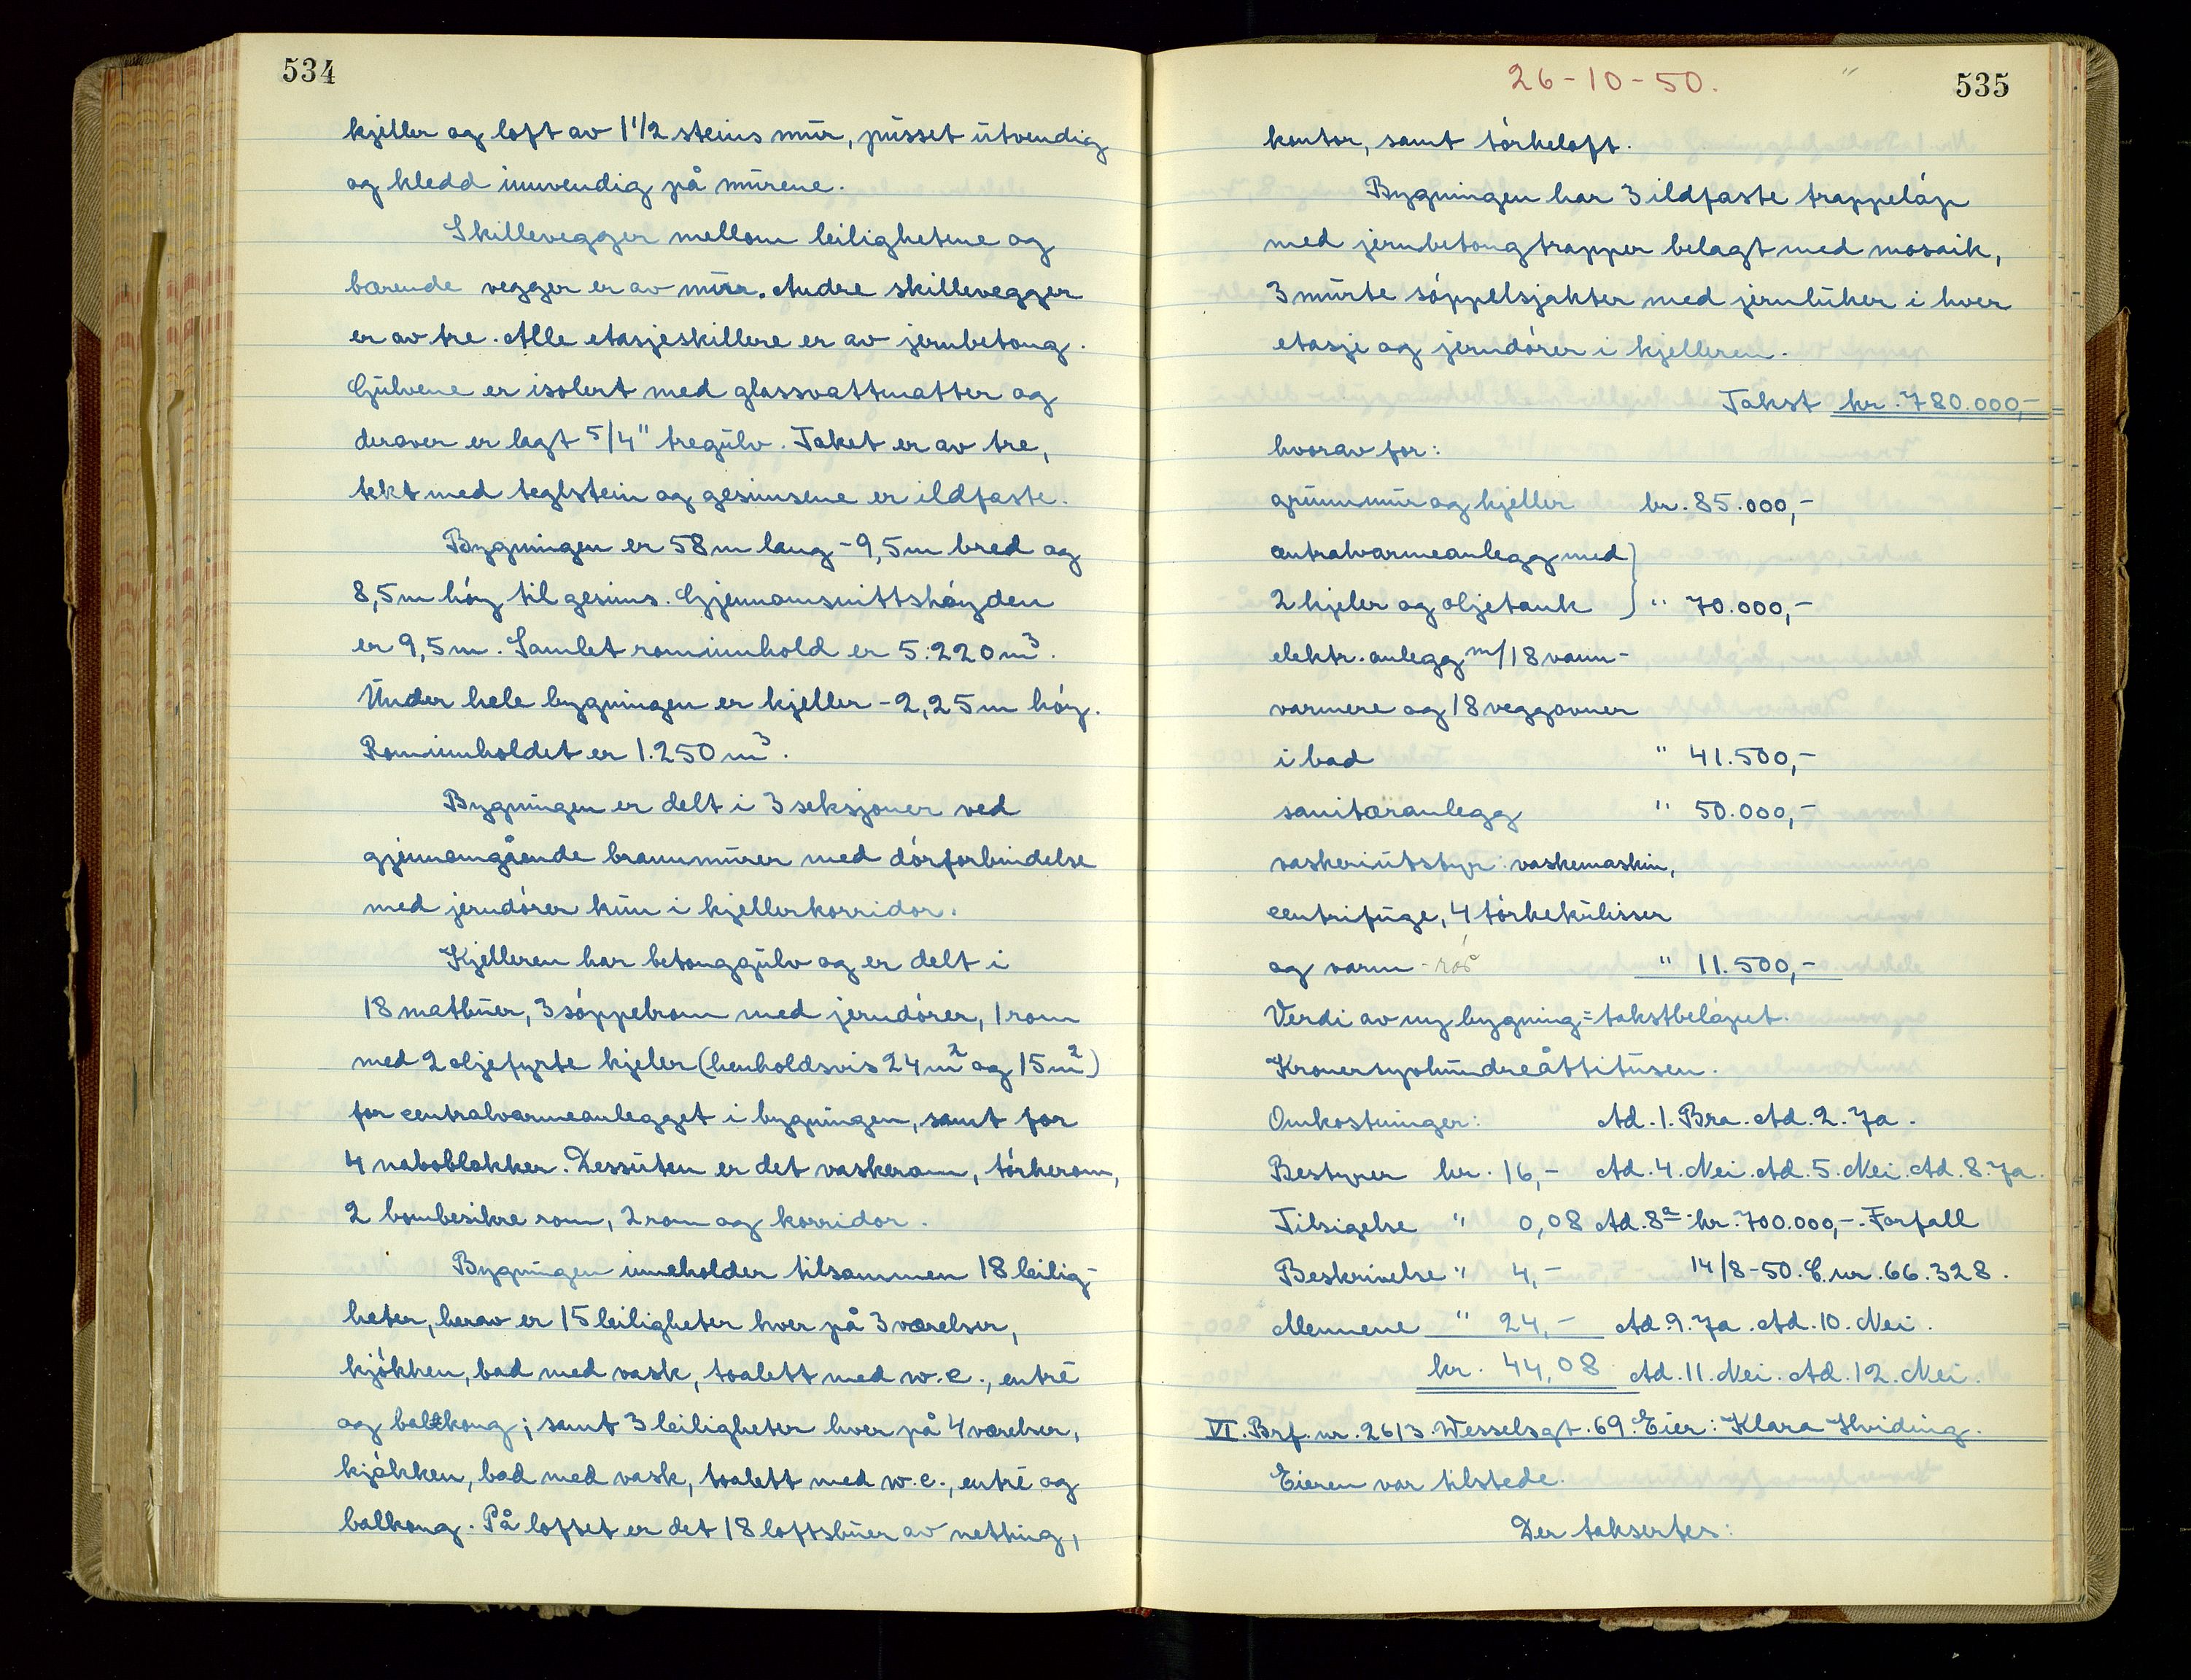 534
kjeller og loft av 1 1/2 steins mur, pusset utvendig
og kledd innvendig på murene.
Skillevegger mellom leilighetene og
bærende vegger er av mur. Andre skillevegger
er av tre. Alle etasjeskillere er av jernbetong.
Gulvene er isolert med glassvattmatter og
derover er lagt 5/4" tregulv. Taket er av tre,
tekt med teglstein og gesimsene er ildfaste.
Bygningen er 58 m lang - 9,5 m bred og
8,5 m høy til gesims. Gjennomsnittshøyden
er 9,5 m. Samlet rominnhold er 5.220 m³.
Under hele bygningen er kjeller - 2,25 m høy.
Rominnholdet er 1.250 m³.
Bygningen er delt i 3 seksjoner ved
gjennomgående brannmurer med dørforbindelse
med jerndører kun i kjellerkorridor.
Kjelleren har betonggulv og er delt i
18 matbuer, 3 søppelrom med jerndører, 1 rom
med 2 oljefyrte kjeler (henholdsvis 24 m² og 15 m²)
for centralvarmeanlegget i bygningen, samt for
4 naboblokker. Dessuten er det vaskerom, tørkerom,
2 bombesikre rom, 2 rom og korridor.
Bygningen inneholder tilsammen 18 leilig-
heter, herav er 15 leiligheter hver på 3 værelser,
kjøkken, bad med vask, toalett med w.c., entré
og balkong; samt 3 leiligheter hver på 4 værelser,
kjøkken, bad med vask, toalett med w.c., entré og
balkong. På loftet er det 18 loftsbuer av netting,
26-10-50. "
535
kontor, samt tørkeloft.
Bygningen har 3 ildfaste trappeløp
med jernbetongtrapper belagt med mosaik,
3 murte søppelsjakter med jernluker i hver
etasje og jerndører i kjelleren.
Takst kr. 780.000,-
hvorav for:
grunnmur og kjeller kr. 85.000,-
centralvarmeanlegg med
2 kjeler og oljetank } " 70.000,-
elektr. anlegg m/18 vann-
varmere og 18 veggovner
i bad " 41.500,-
sanitæranlegg " 50.000,-
vaskeriutstyr: vaskemaskin,
centrifuge, 4 tørkekulisser
og varm-rør " 11.500,-
Verdi av ny bygning = takstbeløpet.
Kronersyvhundreåttitusen.
Omkostninger: Ad. 1. Bra. Ad. 2. Ja.
Bestyrer kr. 16,- Ad. 4. Nei. Ad. 5. Nei. Ad. 8. Ja.
Tilsigelse " 0,08 Ad. 8ª kr. 700.000,-. Forfall
Beskrivelse " 4,- 14/8-50. C. nr. 66.328.
Mennene " 24,- Ad. 9. Ja. Ad. 10. Nei.
kr. 44,08 Ad. 11. Nei. Ad. 12. Nei.
VI. Brf. nr. 2613. Wesselsgt. 69. Eier: Klara Hviding.
Eieren var tilstede.
Der taksertes: